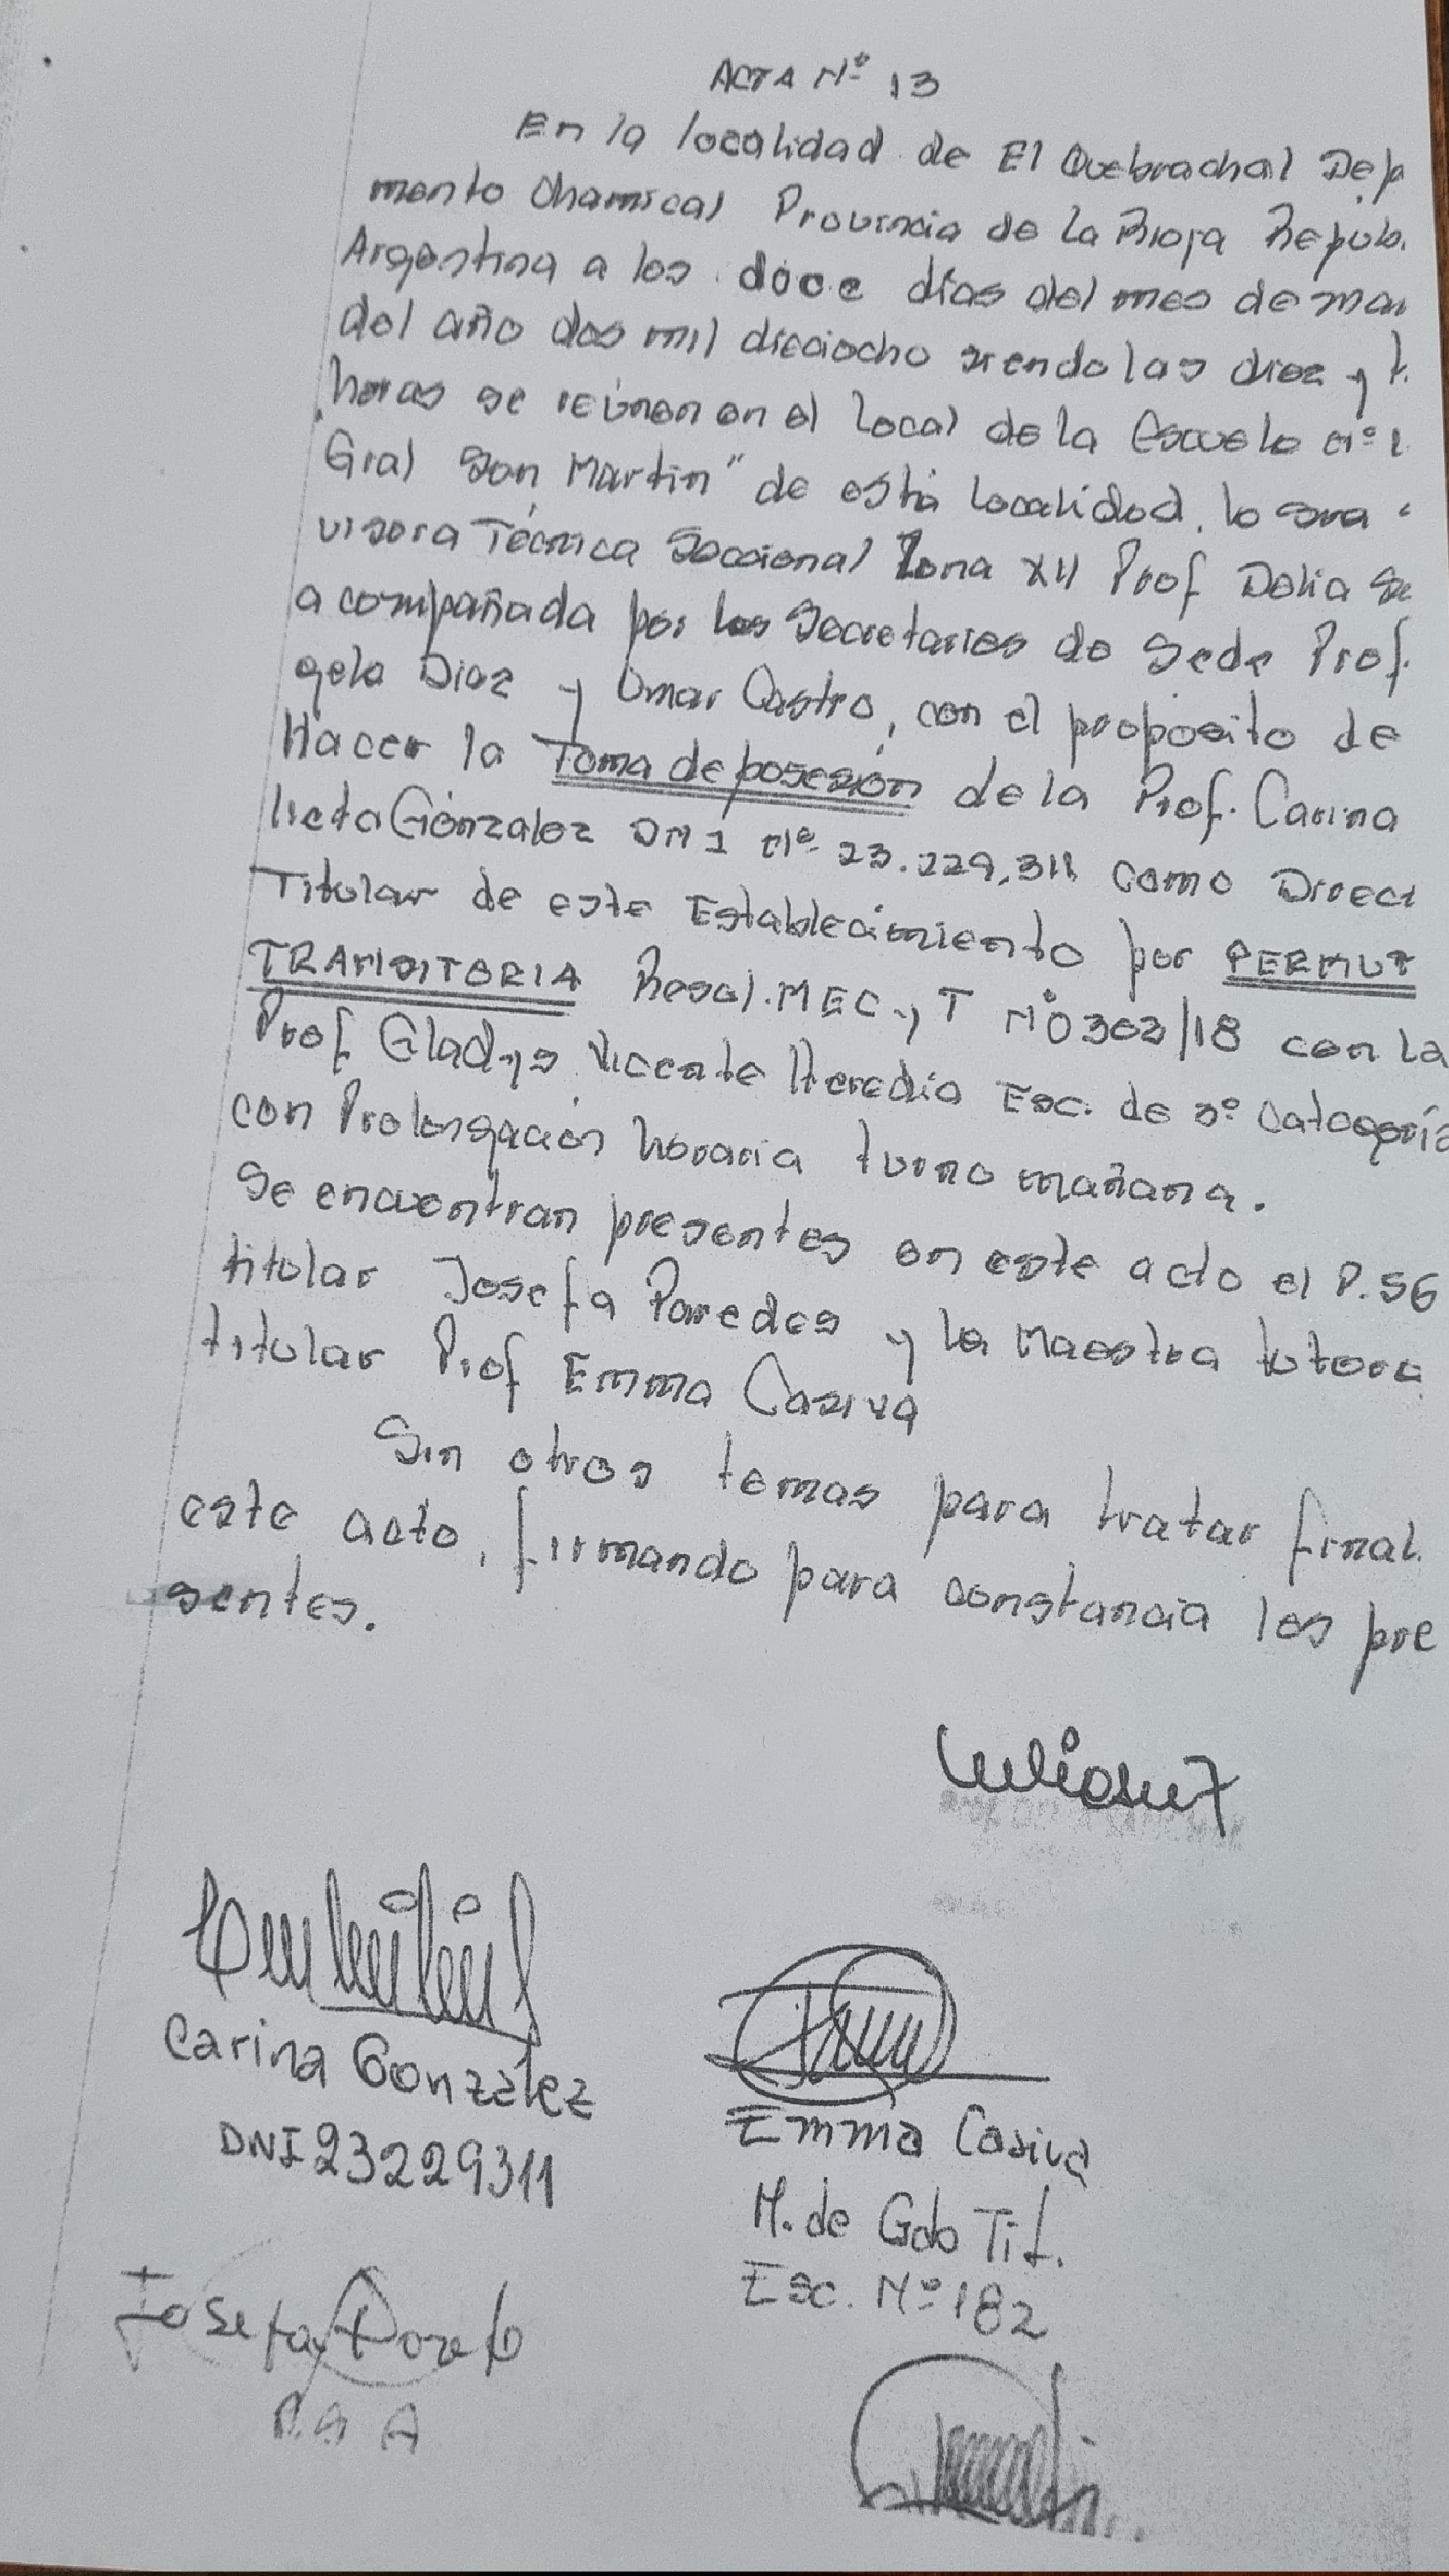 ACTA Nº 13
En la localidad de El Quebrachal Dep
mento Chamical Provincia de La Rioja Repúb.
Argentina a los doce días del mes de mar
del año dos mil dieciocho siendo las diez y
horas se reúnen en el local de la Escuela nº 1
Gral San Martin" de está localidad, la sra
visora Técnica Seccional Zona XII Prof Delia
acompañada por los Secretarios de Sede Prof.
gela Diaz y Omar Castro, con el propósito de
Hacer la Toma de posesión de la Prof. Carina
lieta Gónzalez DNI nº 23.229.311 como Direct
Titular de este Establecimiento por PERMUT
TRANSITORIA Resol. MEC y T Nº 0302/18 con la
Prof Gladys Vicenta Heredia Esc. de 3º categoría
con Prolongación horaria turno mañana.
Se encuentran presentes en este acto el P.SG
titular Josefa Paredes y la Maestra tutora
titular Prof Emma Casiva
Sin otros temas para tratar final.
este acto, firmando para constancia los pre
sentes.
Carina González
DNI 23229311
Emma Casiva
M. de Gdo Tit.
Esc. Nº 182
Josefa
P.S A